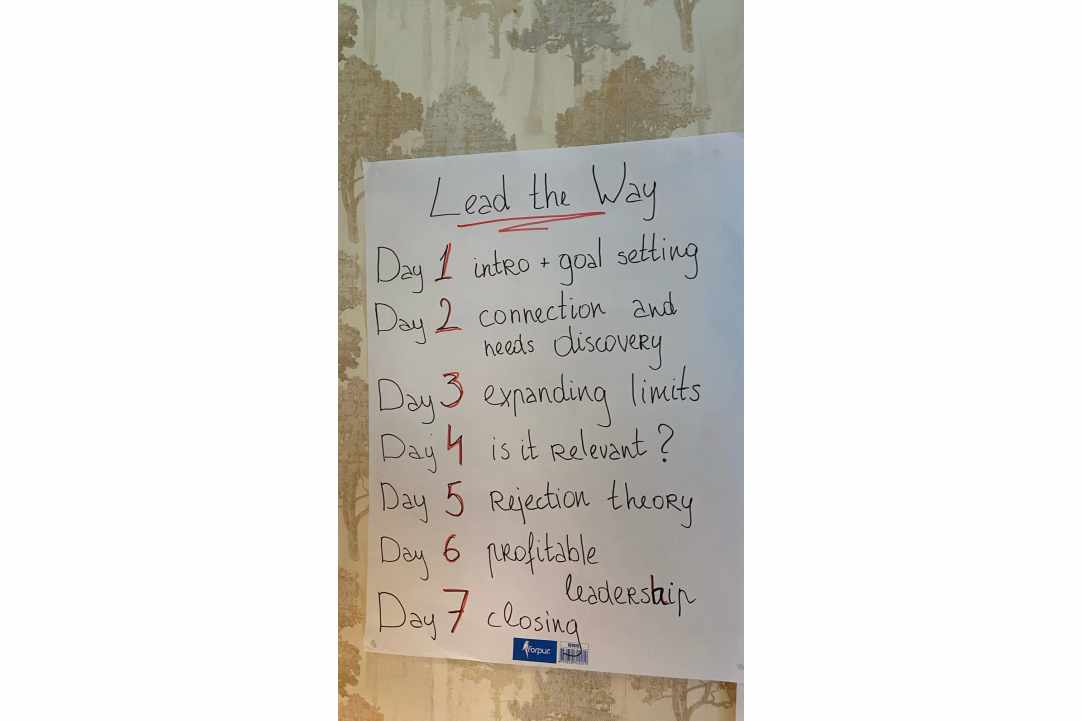 Lead the Way
Day 1 intro + goal setting
Day 2 connection and
needs discovery
Day 3 expanding limits
Day 4 is it relevant?
Day 5 Rejection theory
Day 6 profitable
leadership
Day 7 closing
forpus